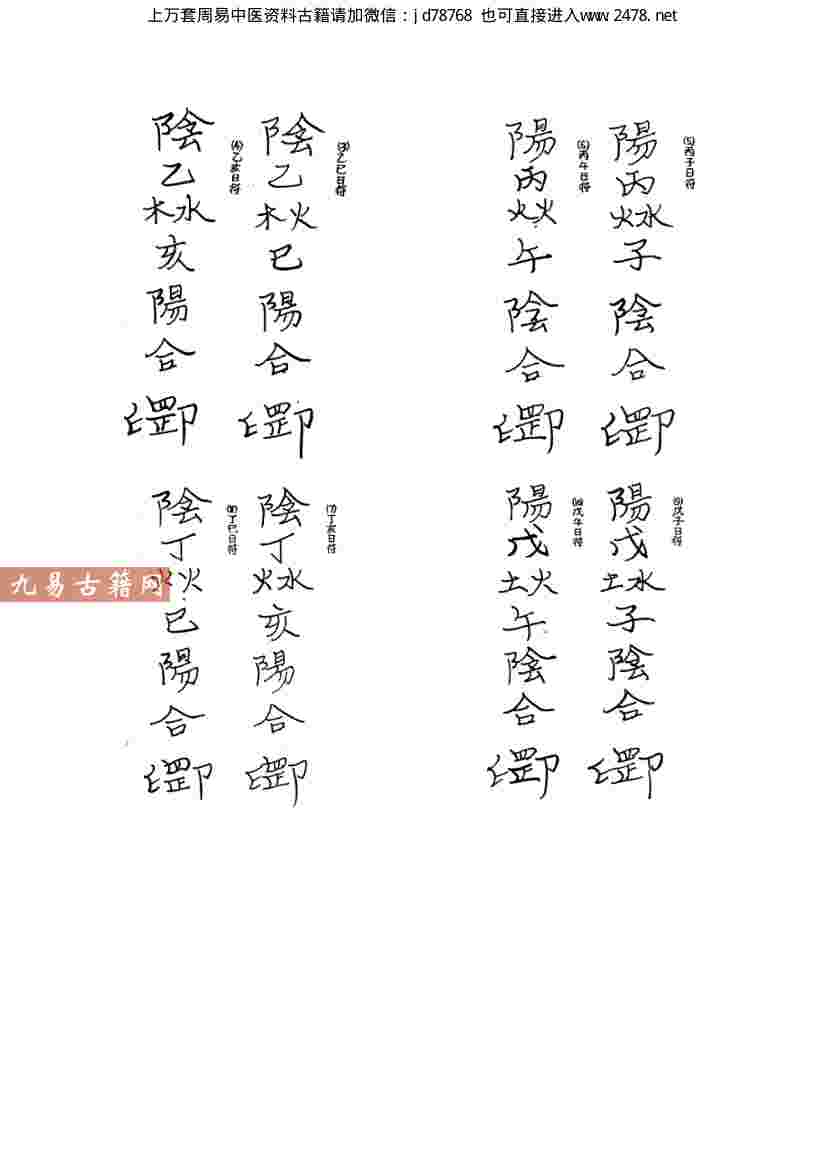 上万套周易中医资料古籍请加微信：jd78768 也可直接进入www.2478.net
(5)丙子日符
陽丙火水子陰合
(6)丙午日符
陽丙火火午陰合
(3)乙巳日符
陰乙木火巳陽合
(4)乙亥日符
陰乙木水亥陽合
(9)戊子日符
陽戊土水子陰合
(10)戊午日符
陽戊土火午陰合
(7)丁亥日符
陰丁火水亥陽合
(8)丁巳日符
陰丁火火巳陽合
九易古籍网